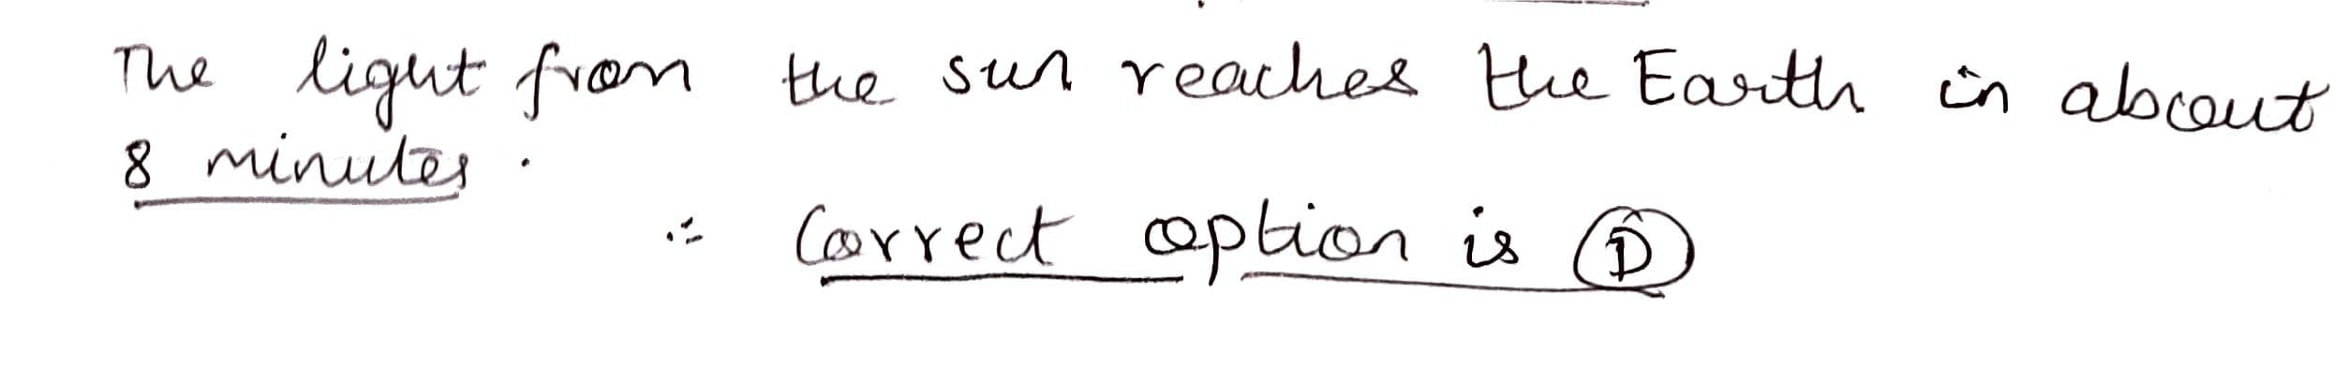 The light from the sun reaches the Earth in about
8 minutes.
∴ Correct option is D